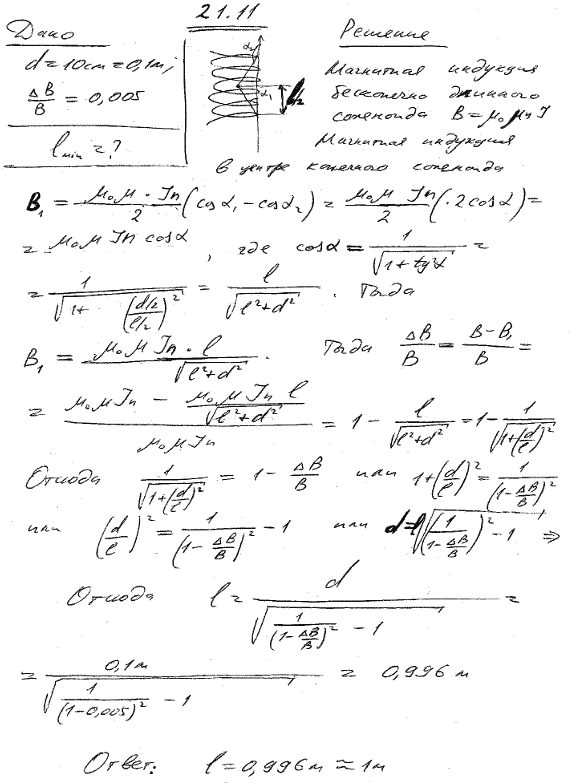 21.11
Дано
d = 10см = 0,1м;
ΔB/B = 0,005
l min = ?
α₂
α₁
l/2
Решение
Магнитная индукция
бесконечно длинного
соленоида B = μ₀μnI
Магнитная индукция
в центре конечного соленоида
B₁ = (μ₀μ · In)/2 (cosα₁ - cosα₂) = (μ₀μ In)/2 (· 2cosα) =
= μ₀μ In cosα, где cosα = 1/√(1 + tg²α) =
= 1/√(1 + ((d/2)/(l/2))²) = l/√(l²+d²). Тогда
B₁ = (μ₀μ In · l)/√(l²+d²). Тогда ΔB/B = (B - B₁)/B =
= (μ₀μ In - (μ₀μ In l)/√(l²+d²))/(μ₀μ In) = 1 - l/√(l²+d²) = 1 - 1/√(1+(d/l)²)
Отсюда 1/√(1+(d/l)²) = 1 - ΔB/B или 1+(d/l)² = 1/(1-ΔB/B)²
или (d/l)² = 1/(1-ΔB/B)² - 1 или d = l√((1/(1-ΔB/B))² - 1) ⇒
Отсюда l = d/√(1/(1-ΔB/B)² - 1) =
= 0,1м/√(1/(1-0,005)² - 1) = 0,996 м
Ответ: l = 0,996м ≈ 1м